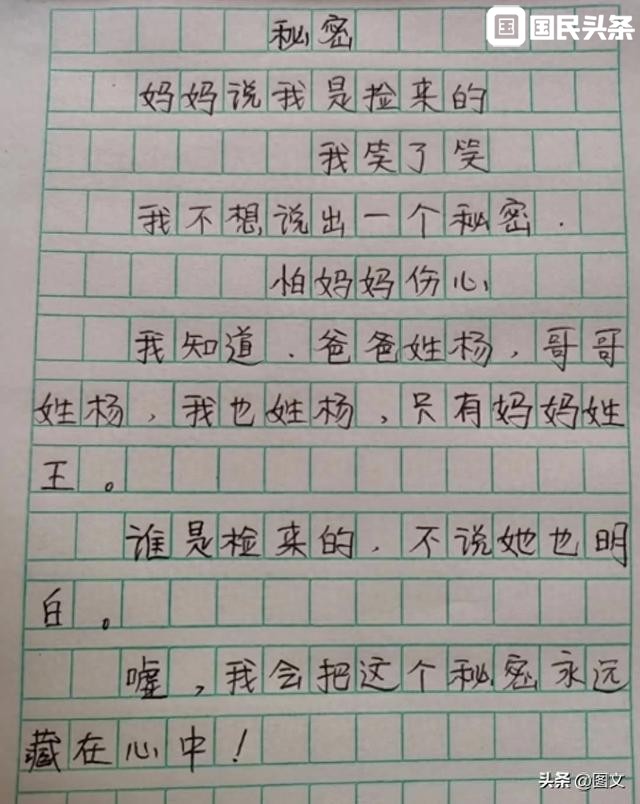 国民头条
秘密
妈妈说我是捡来的
我笑了笑
我不想说出一个秘密.
怕妈妈伤心
我知道.爸爸姓杨,哥哥
姓杨,我也姓杨,只有妈妈姓
王。
谁是检来的.不说她也明
白。
嘘,我会把这个秘密永远
藏在心中!
头条 @图文